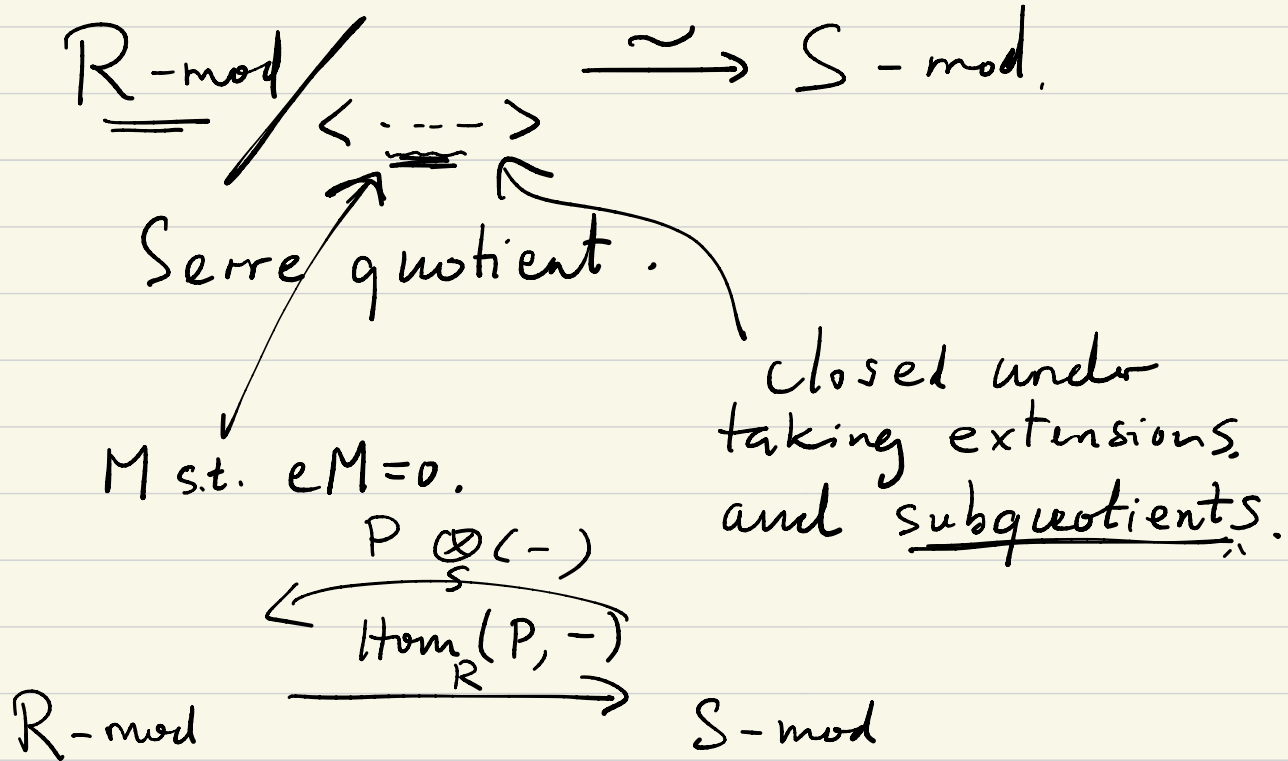 R-mod / < - - - - > ~→ S-mod.
Serre quotient.
closed under
taking extensions.
and subquotients.
M s.t. eM=0.
P ⊗_S (-)
Hom_R (P, -)
R-mod → S-mod